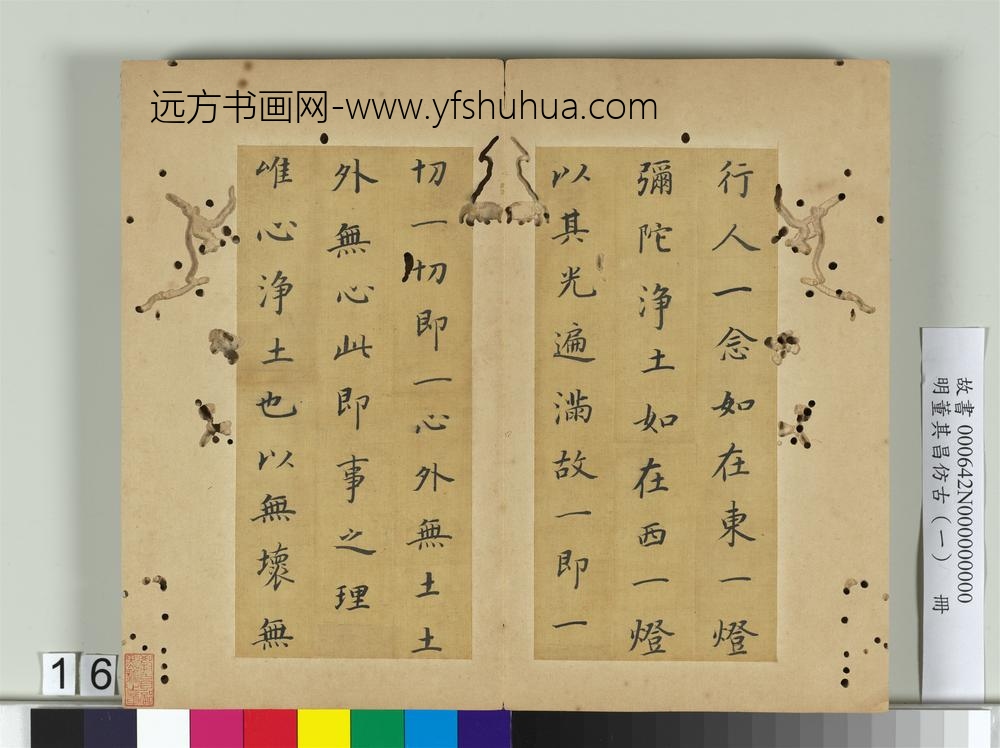 远方书画网-www.yfshuhua.com
行人一念如在東一燈
彌陀淨土如在西一燈
以其光遍滿故一即一
切一切即一心外無土土
外無心此即事之理
唯心淨土也以無壞無
故書 000642N000000000
明董其昌仿古(一) 冊
16